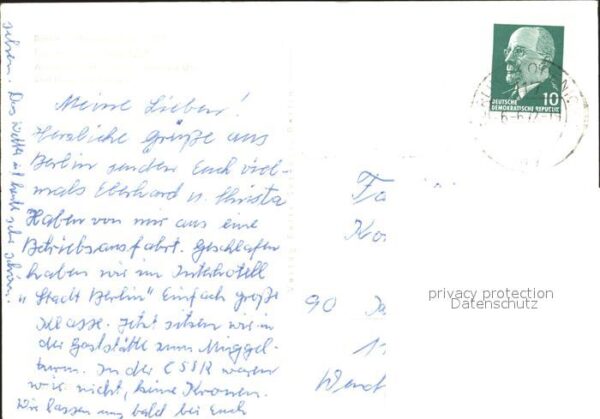 Meine Lieben!
Herzliche Grüße aus
Berlin senden Euch viel-
mals Eberhard u. Christa
Haben von mir aus eine
Betriebsausfahrt. Geschlafen
haben wir im Interhotell
"Stadt Berlin" Einfach große
Klasse. Jetzt sitzen wir in
der Gaststätte zum Müggel-
turm. In der CSSR waren
wir nicht, keine Kronen.
Wir lassen uns bald bei Euch
sehen. Das Wetter ist heute sehr schön.
10
DEUTSCHE
DEMOKRATISCHE REPUBLIK
Fa
Ko
90
privacy protection
Datenschutz